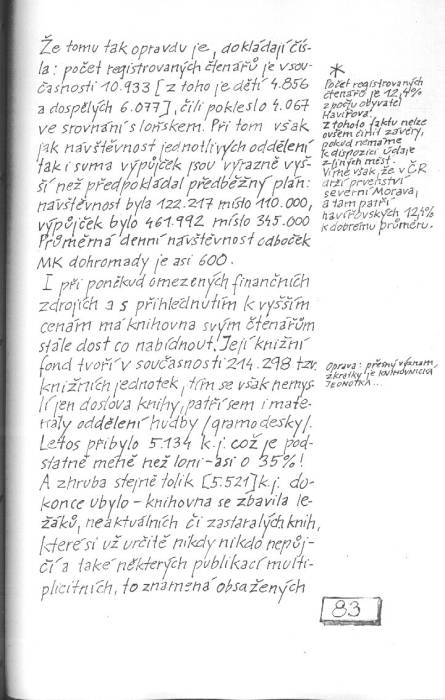 Že tomu tak opravdu je, dokládají čís-
la: počet registrovaných čtenářů je v sou-
časnosti 10.933 [z toho je dětí 4.856
a dospělých 6.077], čili pokleslo 4.067
ve srovnání s lořskem. Při tom však
jak návštěvnost jednotlivých oddělení
tak i suma výpůjček jsou výrazně vyš-
ší než předpokládal předběžný plán:
návštěvnost byla 122.217 místo 110.000,
výpůjček bylo 461.992 místo 345.000
Průměrná denní návštěvnost odboček
MK dohromady je asi 600.
I při poněkud omezených finančních
zdrojích a s přihlédnutím k vyšším
cenám má knihovna svým čtenářům
stále dost co nabídnout. Její knižní
fond tvoří v současnosti 214.298 tzv.
knižních jednotek, tím se však nemys-
lí jen doslova knihy, patří sem i mate-
riály oddělení hudby /gramodesky/.
Letos přibylo 5.134 k.j. což je pod-
statně méně než loni – asi o 35%!
A zhruba stejně tolik [5.521] k.j. do-
konce ubylo – knihovna se zbavila le-
žáků, neaktuálních či zastaralých knih,
které si už určitě nikdy nikdo nepůj-
čí a také některých publikací multi-
plicitních, to znamená obsažených
*
Počet registrovaných
čtenářů je 12,4%
z počtu obyvatel
Havířova.
Z tohoto faktu nelze
ovšem činit závěry,
pokud nemáme
k dispozici údaje
z jiných měst.
Víme však, že v ČR
drží prvenství
severní Morava,
a tam patří
havířovských 12,4%
k dobrému průměru.
Oprava: přesný význam
zkratky je KNIHOVNICKÁ
JEDNOTKA...
83